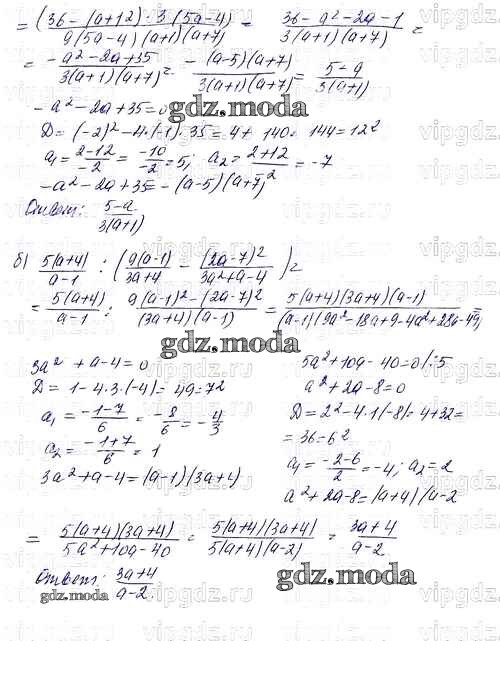 = (36 - (a+1)²) · 3(5a-4) / 9(5a-4)(a+1)(a+7) = 36 - a² - 2a - 1 / 3(a+1)(a+7) =
= -a² - 2a + 35 / 3(a+1)(a+7) = -(a-5)(a+7) / 3(a+1)(a+7) = 5-a / 3(a+1)
-a² - 2a + 35 = 0
gdz.moda
D = (-2)² - 4·(-1)·35 = 4 + 140 = 144 = 12²
a₁ = 2-12 / -2 = -10 / -2 = 5; a₂ = 2+12 / -2 = -7
-a² - 2a + 35 = -(a-5)(a+7)
Ответ: 5-a / 3(a+1)
б) 5(a+4) / a-1 : (9(a-1) / 3a+4 - (2a-7)² / 3a²+a-4) =
= 5(a+4) / a-1 : 9(a-1)² - (2a-7)² / (3a+4)(a-1) = 5(a+4)(3a+4)(a-1) / (a-1)(9a²-18a+9-4a²+28a-49) =
gdz.moda
3a² + a - 4 = 0
D = 1 - 4·3·(-4) = 49 = 7²
a₁ = -1-7 / 6 = -8 / 6 = -4 / 3
a₂ = -1+7 / 6 = 1
3a² + a - 4 = (a-1)(3a+4)
5a² + 10a - 40 = 0 /:5
a² + 2a - 8 = 0
D = 2² - 4·1·(-8) = 4 + 32 =
= 36 = 6²
a₁ = -2-6 / 2 = -4; a₂ = 2
a² + 2a - 8 = (a+4)(a-2
= 5(a+4)(3a+4) / 5a²+10a-40 = 5(a+4)(3a+4) / 5(a+4)(a-2) = 3a+4 / a-2
Ответ: 3a+4 / a-2
gdz.moda
gdz.moda
vipgdz.ru